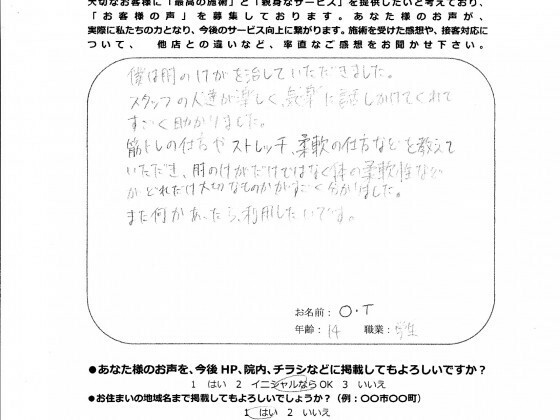 大切なお客様に「最高の施術」と「親身なサービス」を提供したいと考えており、
「お客様の声」を募集しております。あなた様のお声が、
実際に私たちの力となり、今後のサービス向上に繋がります。施術を受けた感想や、接客対応に
ついて、 他店との違いなど、率直なご感想をお聞かせ下さい。
僕は肘のけがを治していただきました。
スタッフの人達が楽しく、気楽に話しかけてくれて
すごく助かりました。
筋トレの仕方やストレッチ、柔軟の仕方などを教えて
いただき、肘のけがだけではなく体の柔軟性など
がどれだけ大切なものかがすごく分かりました。
また何かあったら、利用したいです。
お名前： O・T
年齢： 14 職業： 学生
●あなた様のお声を、今後HP、院内、チラシなどに掲載してもよろしいですか？
1 はい 2 イニシャルならOK 3 いいえ
●お住まいの地域名まで掲載してもよろしいでしょうか？（例：〇〇市〇〇町）
1 はい 2 いいえ